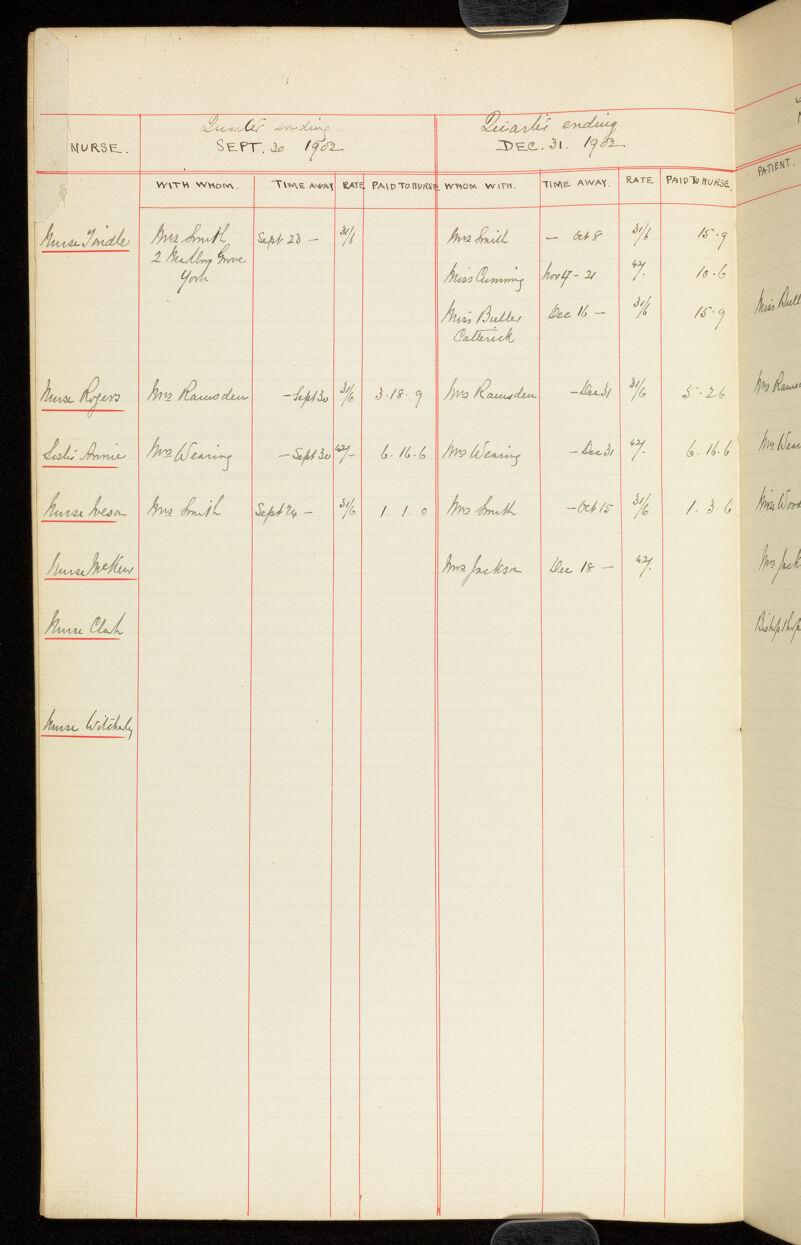 Quarter ending Quarter ending
NURSE. SEPT. 30 1902 DEC. 31. 1902
WITH WHOM. TIME AWAY RATE PAID TO NURSE WHOM WITH. TIME AWAY. RATE. PAID TO NURSE. PATIENT.
Nurse Tindle Mrs Smith Sept 23 – 31/6 Mrs Smith – Oct 8 31/6 15 · 9
2 Grove
York Miss Cumming Nov 17 – 21 42/. 10 · 6
Miss Butler Dec 16 – 31/6 15 · 9 Miss Butl
Catterick
Nurse Rogers Mrs Ramsden – Sept 30 31/6 3 · 18 · 9 Mrs Ramsden – Dec 31 31/6 5 · 2 6 Mrs Rams
Sister Annie Mrs Wearing – Sept 30 42/– 6 · 16 · 6 Mrs Wearing – Dec 31 42/. 6 · 16 · 6 Mrs Wea
Nurse Iveson Mrs Smith Sept 24 – 31/6 1 . 1 . 0 Mrs Smith – Oct 15 31/6 1 . 3 6
Nurse McKew Mrs Jackson Dec 18 – 42/. Mrs Jack
Nurse Clark Bishopthorp
Nurse